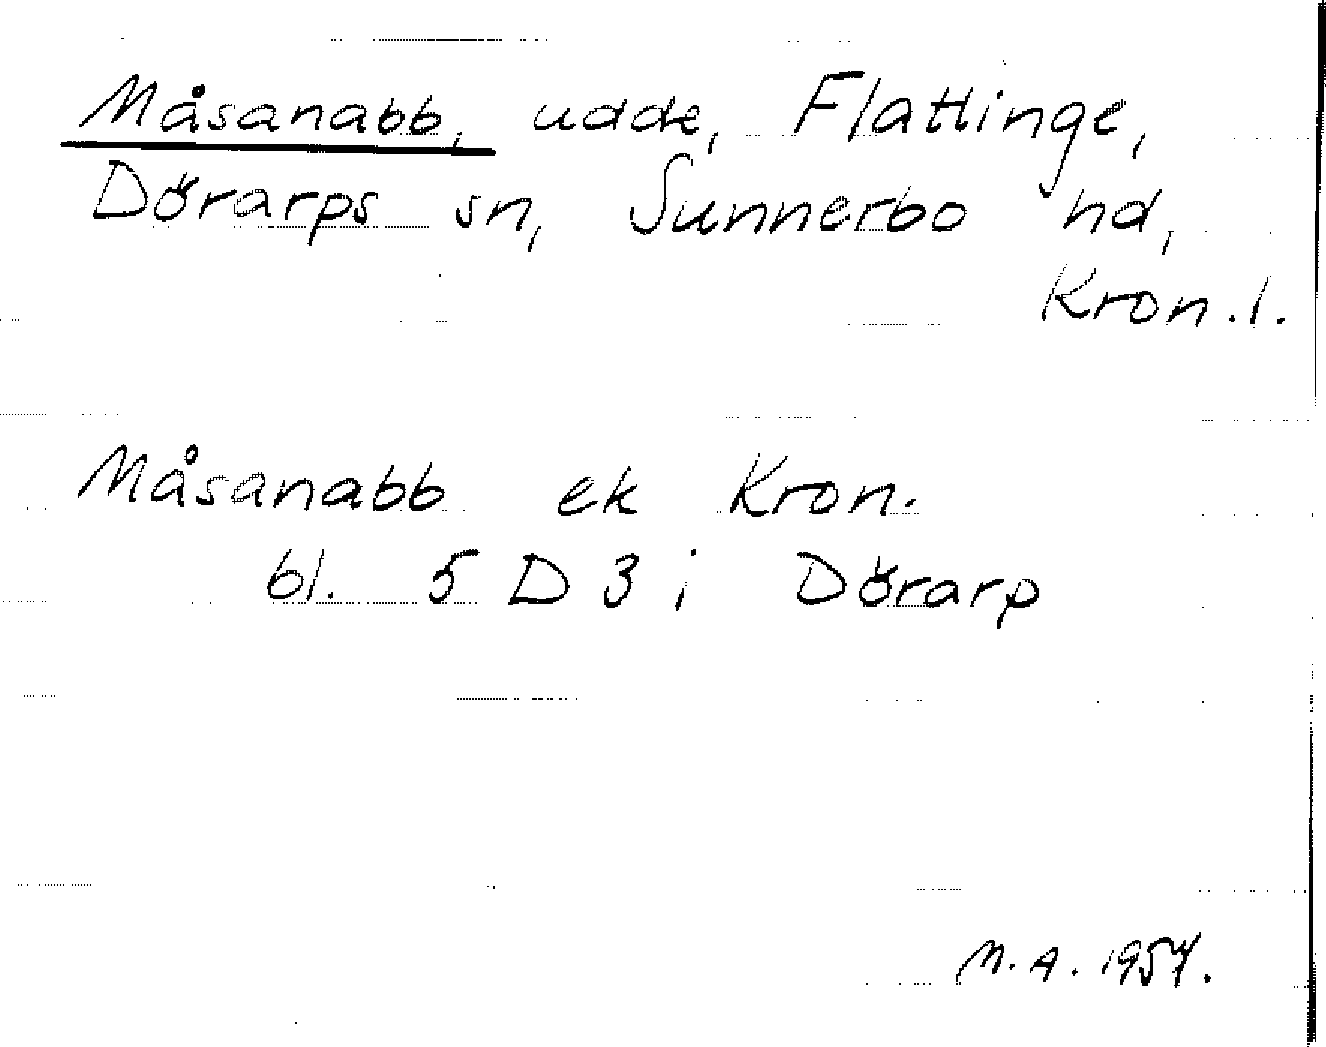 Måsanabb, udde, Flattinge,
Dörarps sn, Sunnerbo hd,
Kron.l.
Måsanabb ek Kron.
bl. 5 D 3 i Dörarp
M.A. 1954.